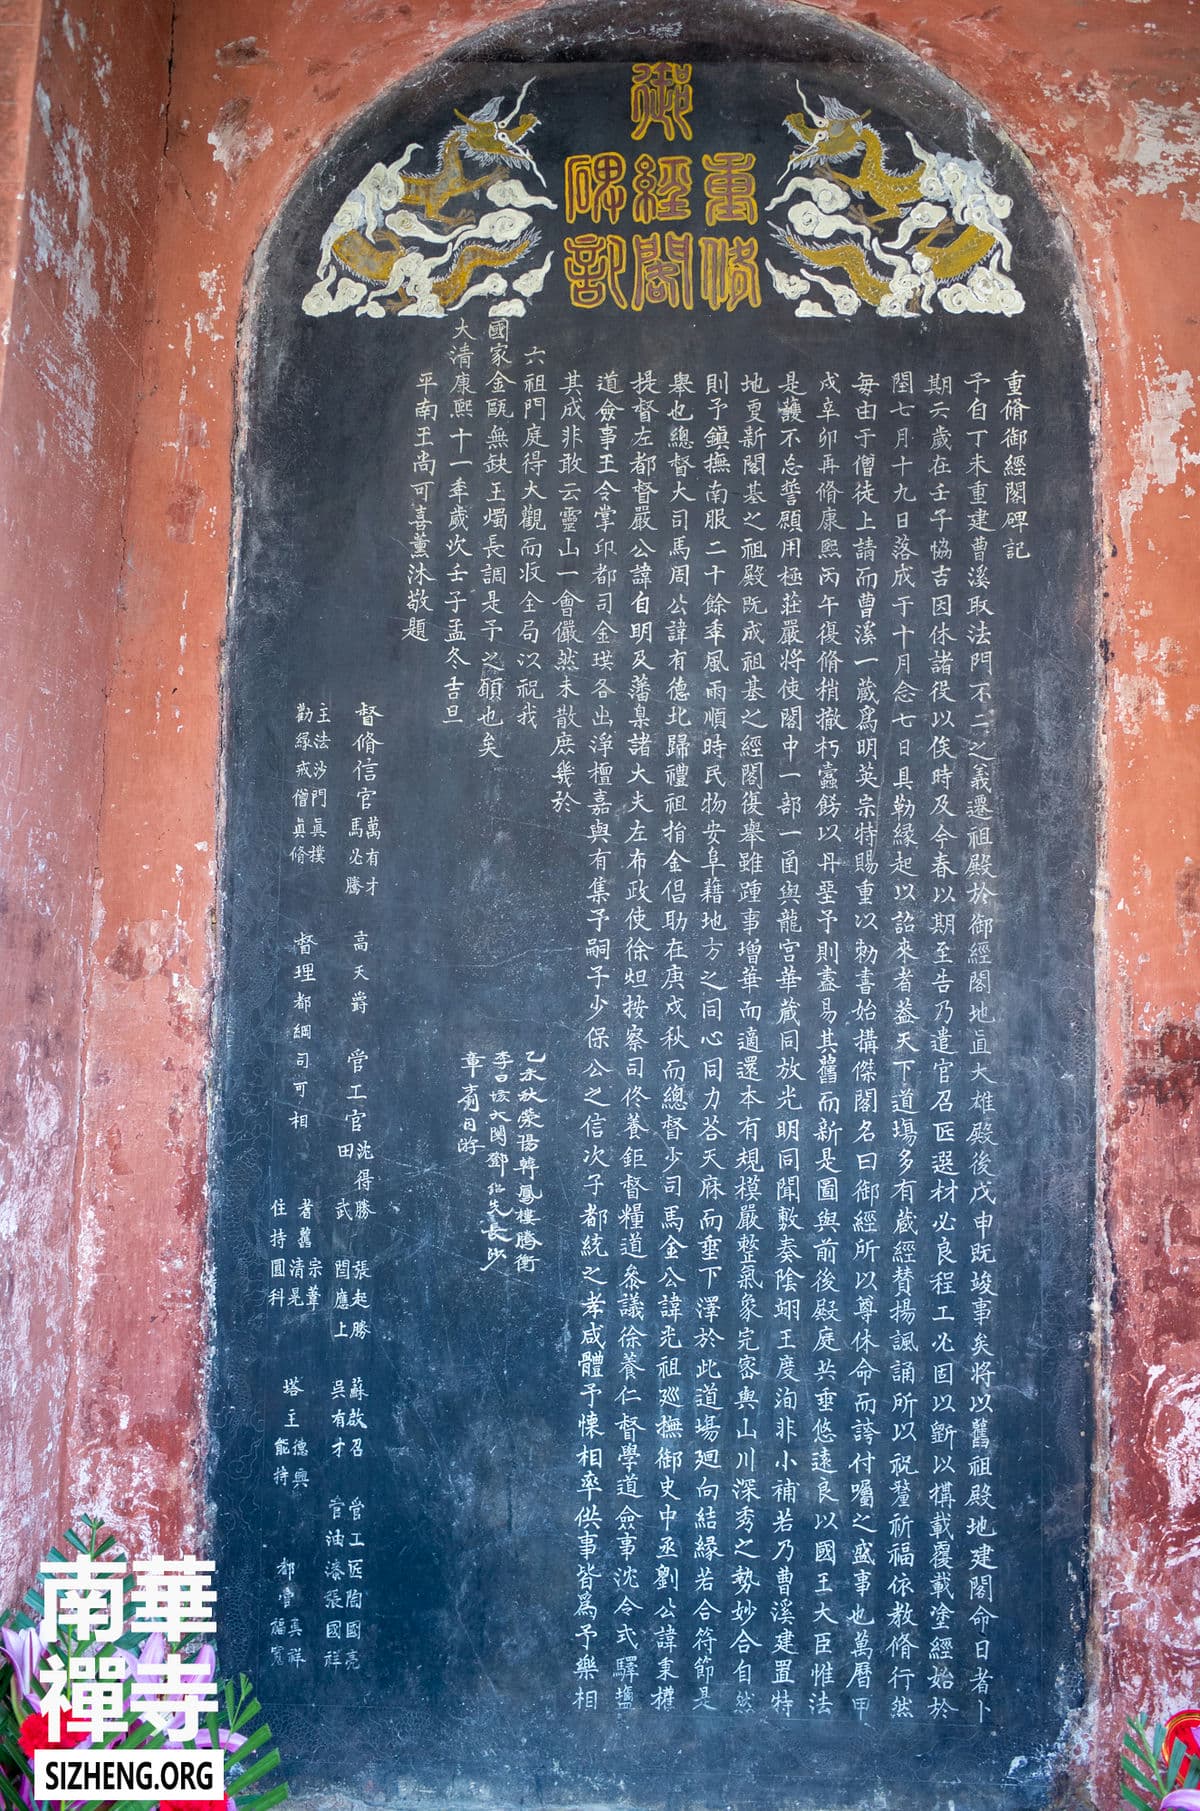 重修御經閣碑記
重脩御經閣碑記
予自丁未重建曹溪取法門不二之義遷祖殿於御經閣地直大雄殿後戊申既竣事矣將以舊祖殿地建閣命日者卜
期云歲在壬子協吉因休諸役以俟時及今春以期至告乃遣官召匠選材必良程工必固以斲以構載覆載塗經始於
閏七月十九日落成于十月念七日具勒緣起以詔來者葢天下道場多有藏經贊揚諷誦所以祝釐祈福依教脩行然
每由于僧徒上請而曹溪一藏爲明英宗特賜重以勅書始構傑閣名曰御經所以尊休命而誇付囑之盛事也萬曆甲
戌辛卯再脩康熙丙午復脩稍撤朽蠹餙以丹堊予則盡易其舊而新是圖與前後殿庭共垂悠遠良以國王大臣惟法
是護不忘誓願用極莊嚴將使閣中一部一凾與龍宮華藏同放光明同聞敷奏陰翊王度洵非小補若乃曹溪建置特
地更新閣基之祖殿既成祖基之經閣復舉雖踵事增華而適還本有規模嚴整氣象完密與山川深秀之勢妙合自然
則予鎮撫南服二十餘秊風雨順時民物安阜藉地方之同心同力荅天庥而垂下澤於此道場廻向結緣若合符節是
舉也總督大司馬周公諱有德北歸禮祖指金倡助在庚戌秋而總督少司馬金公諱光祖廵撫御史中丞劉公諱秉權
提督左都督嚴公諱自明及藩臬諸大夫左布政使徐炟按察司佟養鉅督糧道叅議徐養仁督學道僉事沈令式驛鹽
道僉事王令掌印都司金珙各出淨檀嘉與有集予嗣子少保公之信次子都統之孝咸體予悚相率供事皆爲予樂相
其成非敢云靈山一會儼然未散庶幾於
六祖門庭得大觀而收全局以祝我
國家金甌無缺王燭長調是予之願也矣
大清康熙十一秊歲次壬子孟冬吉旦
平南王尚可喜薰沐敬題
乙未秋滎陽韓鳳樓騰衝
李曰垓大關鄧紹先長沙
章肅同游
督脩信官萬有才馬必騰 高天爵 管工官沈得勝田武 張起勝閻應上 蘇啟召吳有才 管工匠陶國亮管油漆張國祥
主法沙門眞樸
勸緣戒僧眞脩 督理都綱司可相 耆舊宗葦清晃
住持圓科 塔主德興能持 都管眞祥福寬
南華
禪寺
SIZHENG.ORG